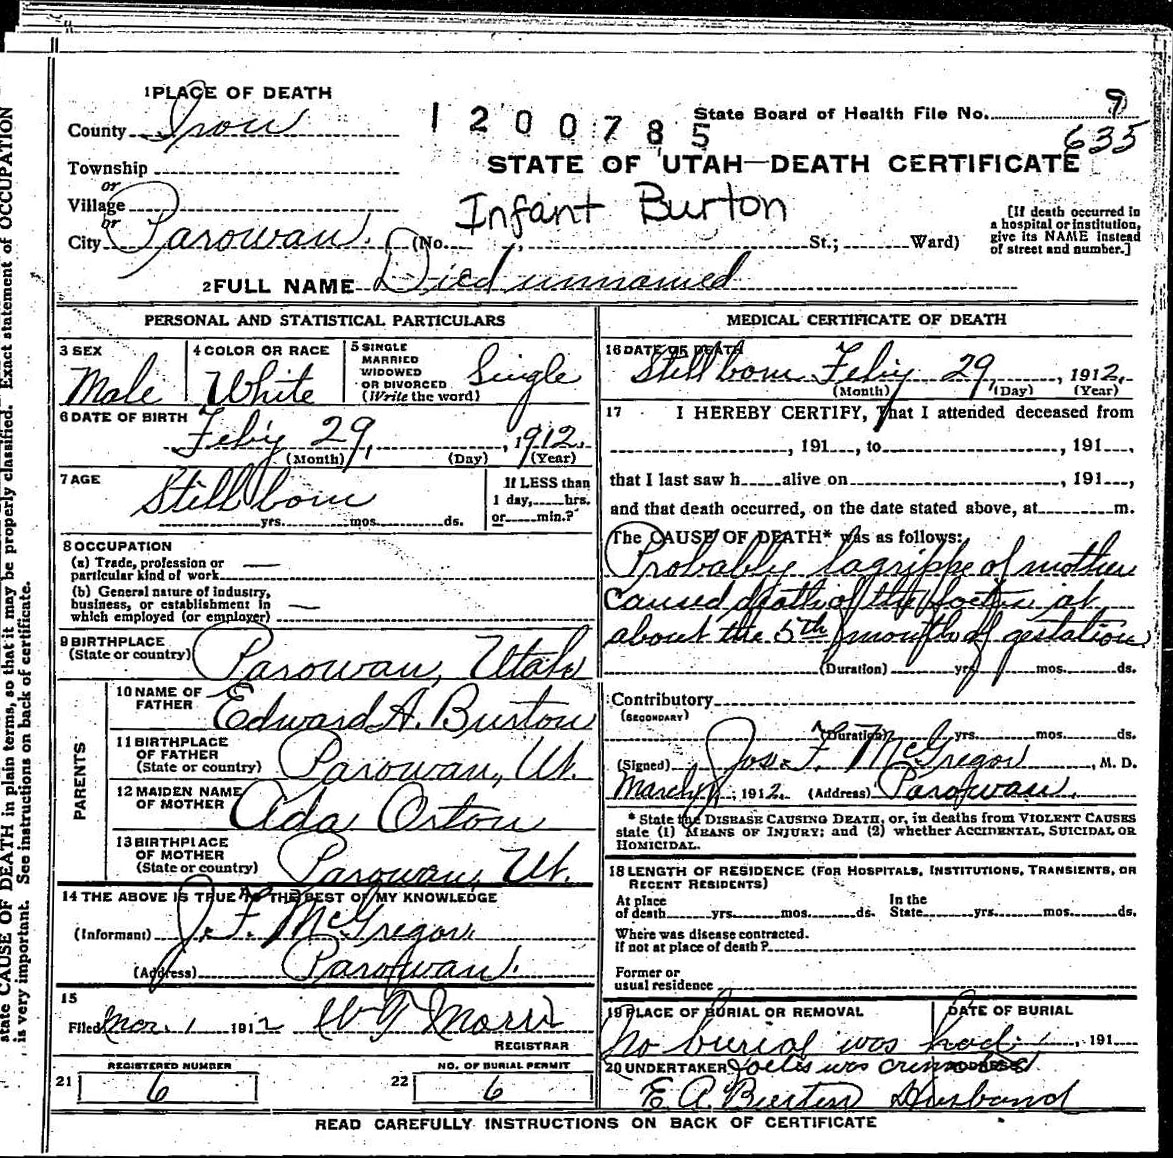 state CAUSE OF DEATH in plain terms, so that it may be properly classified. Exact statement of OCCUPATION
is very important. See instructions on back of certificate.
1 PLACE OF DEATH
County Iron
Township
or
Village
or
City Parowan. (No. , St.; Ward)
1200785
State Board of Health File No. 9
635
STATE OF UTAH—DEATH CERTIFICATE
Infant Burton
[If death occurred in
a hospital or institution,
give its NAME instead
of street and number.]
2 FULL NAME Died unnamed
PERSONAL AND STATISTICAL PARTICULARS
3 SEX
Male
4 COLOR OR RACE
White
5 SINGLE
MARRIED
WIDOWED
OR DIVORCED
(Write the word)
Single
6 DATE OF BIRTH
Feby 29, , 1912.
(Month) (Day) (Year)
7 AGE
Still born
yrs. mos. ds.
If LESS than
1 day, hrs.
or min.?
8 OCCUPATION
(a) Trade, profession or
particular kind of work —
(b) General nature of industry,
business, or establishment in
which employed (or employer) —
9 BIRTHPLACE
(State or country) Parowan, Utah
PARENTS
10 NAME OF
FATHER Edward A. Burton
11 BIRTHPLACE
OF FATHER
(State or country) Parowan, Ut.
12 MAIDEN NAME
OF MOTHER Ada Orton
13 BIRTHPLACE
OF MOTHER
(State or country) Parowan, Ut.
14 THE ABOVE IS TRUE TO THE BEST OF MY KNOWLEDGE
(Informant) J. F. McGregor,
(Address) Parowan.
15
Filed Mar. 1 1912 Morris
REGISTRAR
REGISTERED NUMBER
21 6
NO. OF BURIAL PERMIT
22 6
MEDICAL CERTIFICATE OF DEATH
16 DATE OF DEATH
Still born Feby 29, , 1912.
(Month) (Day) (Year)
17 I HEREBY CERTIFY, That I attended deceased from
, 191 , to , 191 ,
that I last saw h alive on , 191 ,
and that death occurred, on the date stated above, at m.
The CAUSE OF DEATH* was as follows:
Probably lagrippe of mother
caused death of the foetus at
about the 5th month of gestation.
(Duration) yrs. mos. ds.
Contributory
(SECONDARY)
(Duration) yrs. mos. ds.
(Signed) Jos. F. McGregor , M. D.
March , 1912. (Address) Parowan.
* State the DISEASE CAUSING DEATH, or, in deaths from VIOLENT CAUSES
state (1) MEANS OF INJURY; and (2) whether ACCIDENTAL, SUICIDAL OR
HOMICIDAL.
18 LENGTH OF RESIDENCE (FOR HOSPITALS, INSTITUTIONS, TRANSIENTS, OR
RECENT RESIDENTS)
At place
of death yrs. mos. ds.
In the
State yrs. mos. ds.
Where was disease contracted.
if not at place of death?
Former or
usual residence
19 PLACE OF BURIAL OR REMOVAL
DATE OF BURIAL
No burial was had. , 191
20 UNDERTAKER foetus was
E. A. Burton Husband
READ CAREFULLY INSTRUCTIONS ON BACK OF CERTIFICATE